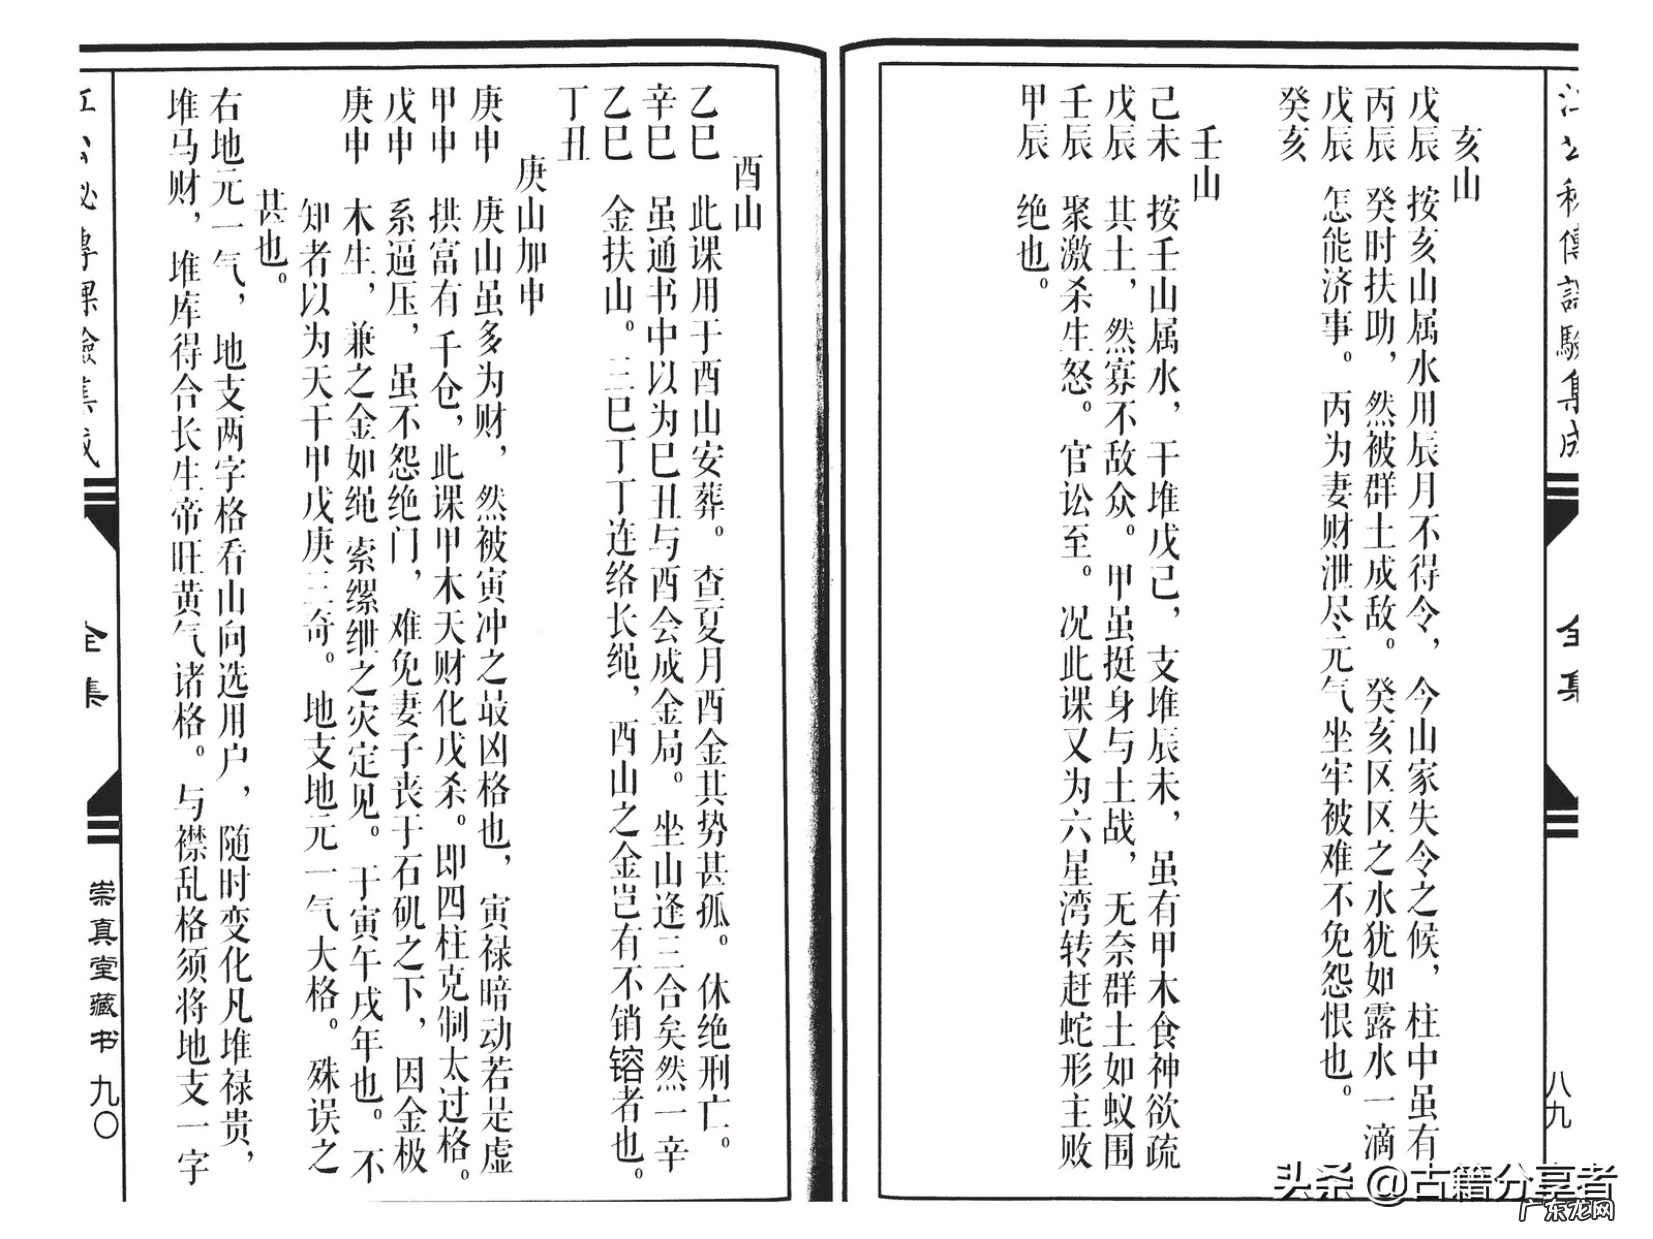 江公秘傳課驗集成
全集
八九
亥山
戊辰 按亥山属水用辰月不得令，今山家失令之候，柱中虽有
丙辰 癸时扶助，然被群土成敌。癸亥区区之水犹如露水一滴
戊辰 怎能济事。丙为妻财泄尽元气坐牢被难不免怨恨也。
癸亥
壬山
己未 按壬山属水，干堆戊己，支堆辰未，虽有甲木食神欲疏
戊辰 其土，然寡不敌众。甲虽挺身与土战，无奈群土如蚁围
壬辰 聚激杀生怒。官讼至。况此课又为六星湾转赶蛇形主败
甲辰 绝也。
酉山
乙巳 此课用于酉山安葬。查夏月酉金其势甚孤。休绝刑亡。
辛巳 虽通书中以为巳丑与酉会成金局。坐山逢三合矣然一辛
乙巳 金扶山。三巳丁丁连络长绳，酉山之金岂有不销镕者也。
丁丑
庚山加申
庚申 庚山虽多为财，然被寅冲之最凶格也，寅禄暗动若是虚
甲申 拱富有千仓，此课甲木天财化戊杀。即四柱克制太过格。
戊申 系逼压，虽不怨绝门，难免妻子丧于石矶之下，因金极
庚申 木生，兼之金如绳索缧绁之灾定见。于寅午戌年也。不
知者以为天干甲戊庚三奇。地支地元一气大格。殊误之
甚也。
右地元一气，地支两字格看山向选用户，随时变化凡堆禄贵，
堆马财，堆库得合长生帝旺黄气诸格。与襟乱格须将地支一字
江公秘傳課驗集成
全集
崇真堂藏书 九〇
头条 @古籍分享者
广东龙网